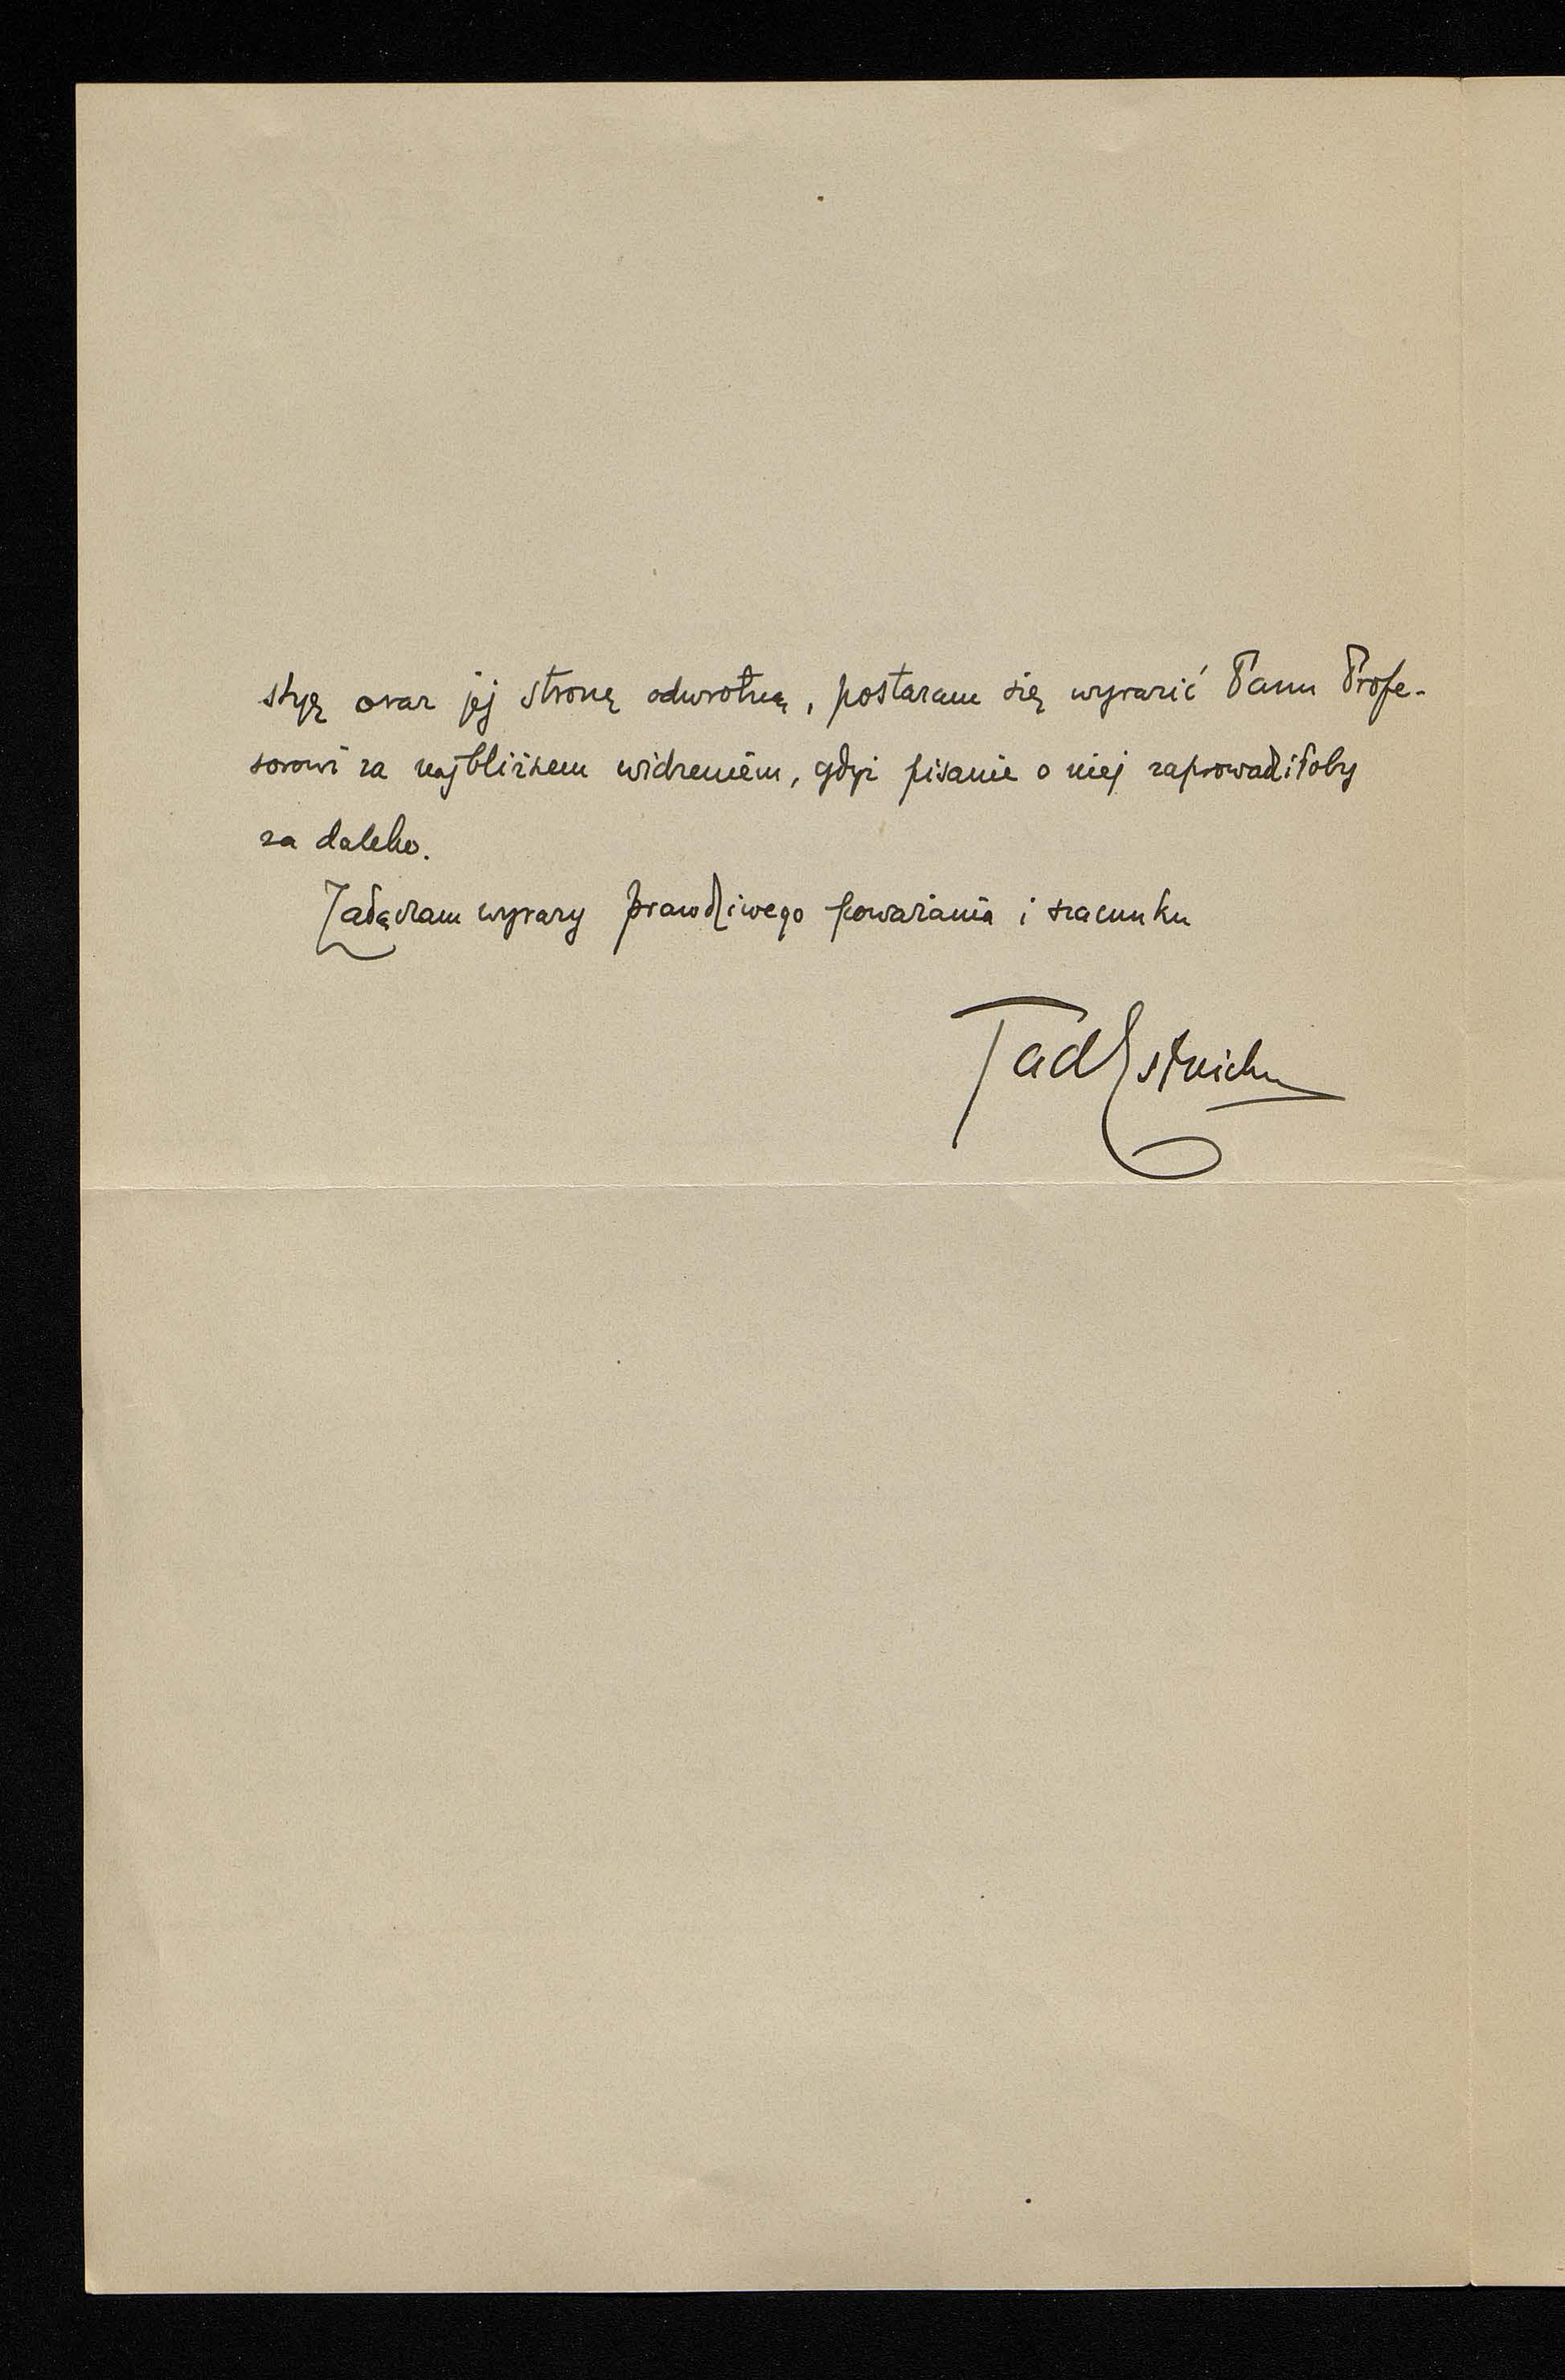 styę oraz jej stronę odwrotną, postaram się wyrazić Panu Profe-
sorowi za najbliższem widzeniem, gdyż pisanie o niej zaprowadziłoby
za daleko.
Załączam wyrazy prawdziwego poważania i szacunku
TadEstreicher